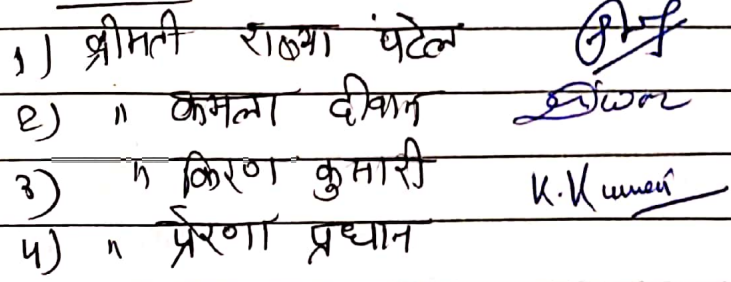 1) श्रीमती राज्या पटेल
2) " कमला दीवान
3) " किरण कुमारी K. Kumari
4) " प्रेरणा प्रधान